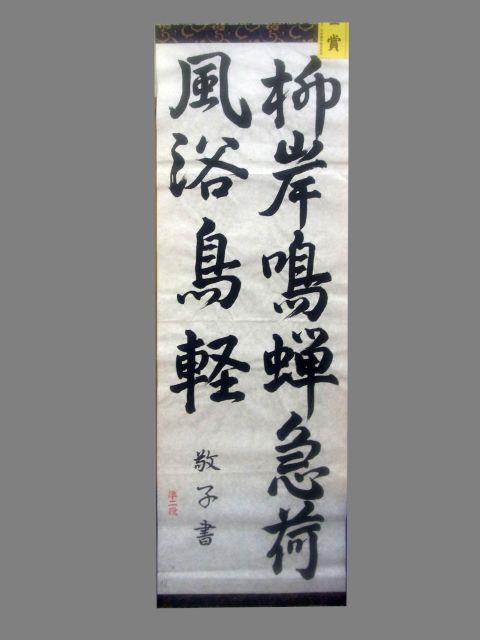 柳岸鳴蝉急荷
風浴鳥軽
敬子書
準二段
賞